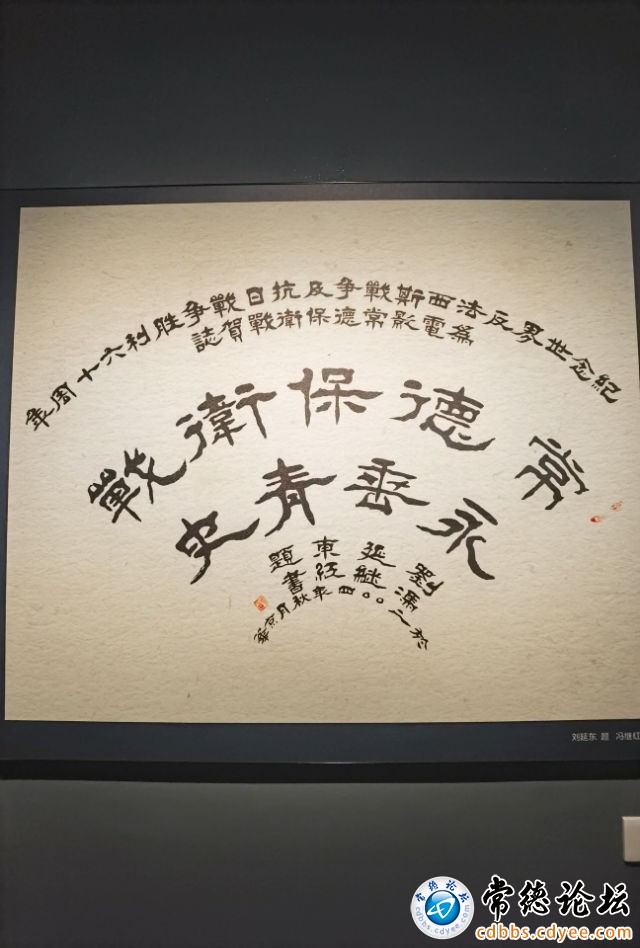 紀念世界反法西斯戰争及抗日戰争胜利六十周年
爲電影常德保衛戰賀誌
常德保衛戰
永垂青史
劉延東題
馮継紅書
於二〇〇四年秋月京華
刘延东 题 冯继红
常德论坛
常德论坛
cdbbs.cdyee.com
cdbbs.cdyee.com